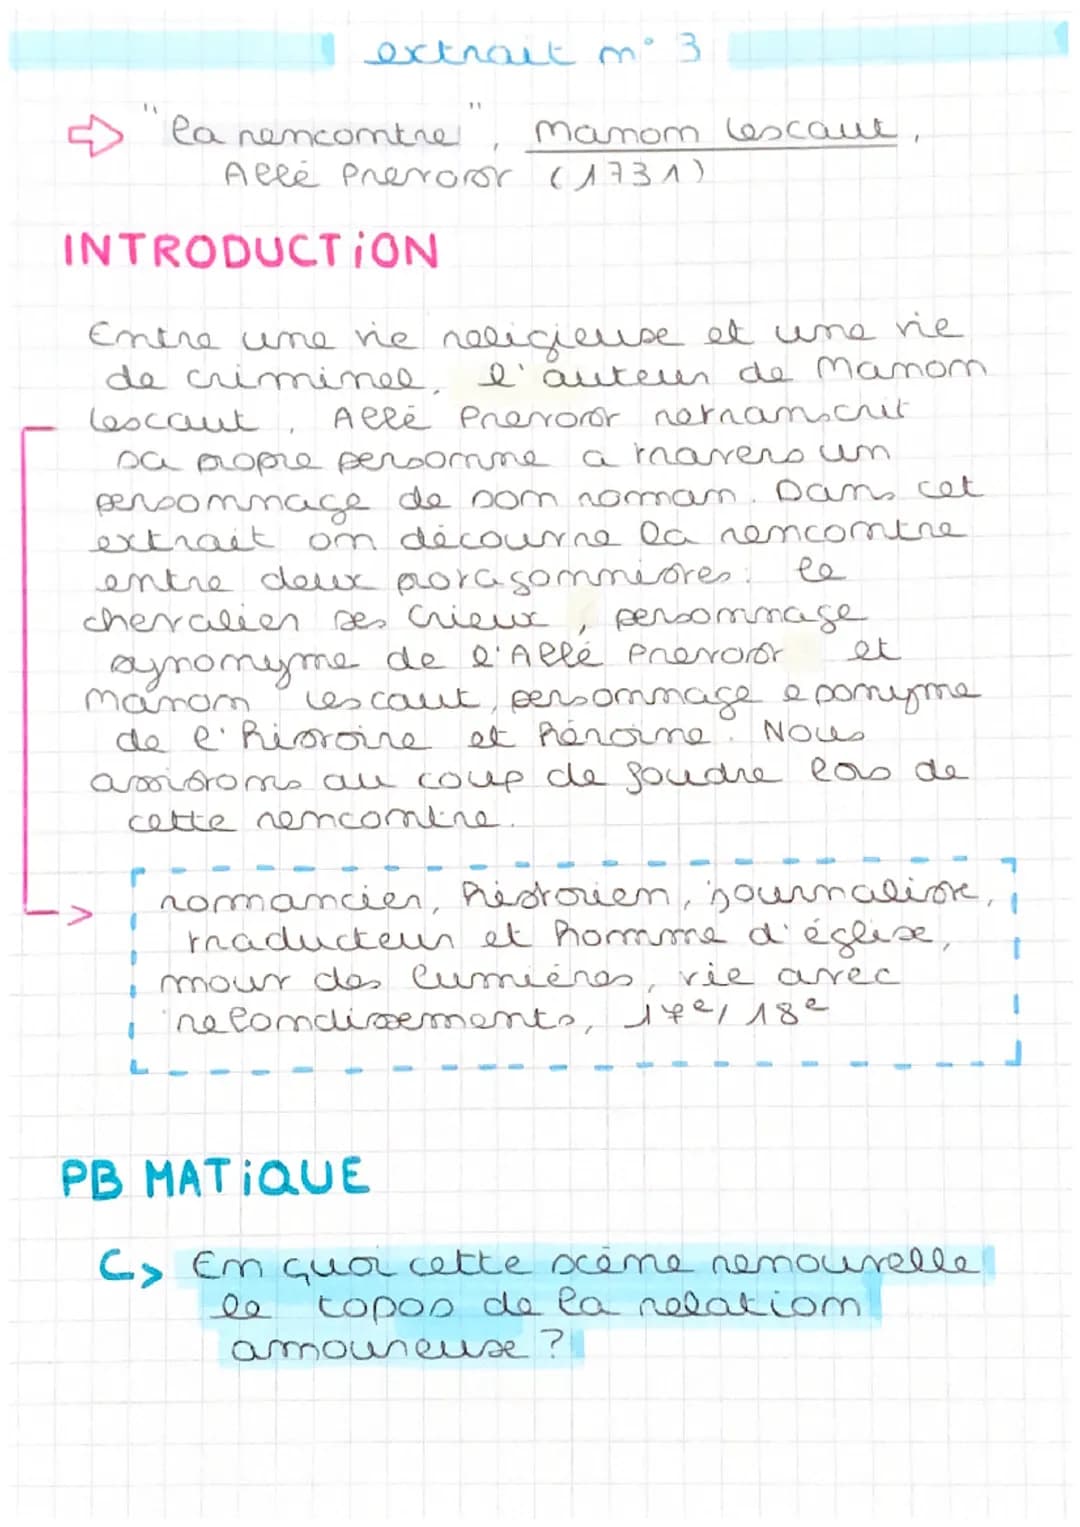 extrait n° 3
"la rencontre", Manon Lescaut,
Abbé Prevost (1731)
INTRODUCTION
Entre une vie religieuse et une vie
de criminel, l'auteur de Manon
Lescaut, Abbé Prevost retranscrit
sa propre personne a travers un
personnage de son roman. Dans cet
extrait on découvre la rencontre
entre deux protagonnistes: le
chevalier Des Grieux, personnage
synonyme de l'Abbé Prevost et
Manon Lescaut, personnage eponyme
de l'histoire et héroine. Nous
assistons au coup de foudre lors de
cette rencontre.
romancier, historien, journaliste,
traducteur et homme d'église,
mour des lumières, vie avec
rebondissements, 17e/18e
PB MATIQUE
En quoi cette scène renouvelle
le topos de la relation
amoureuse ?